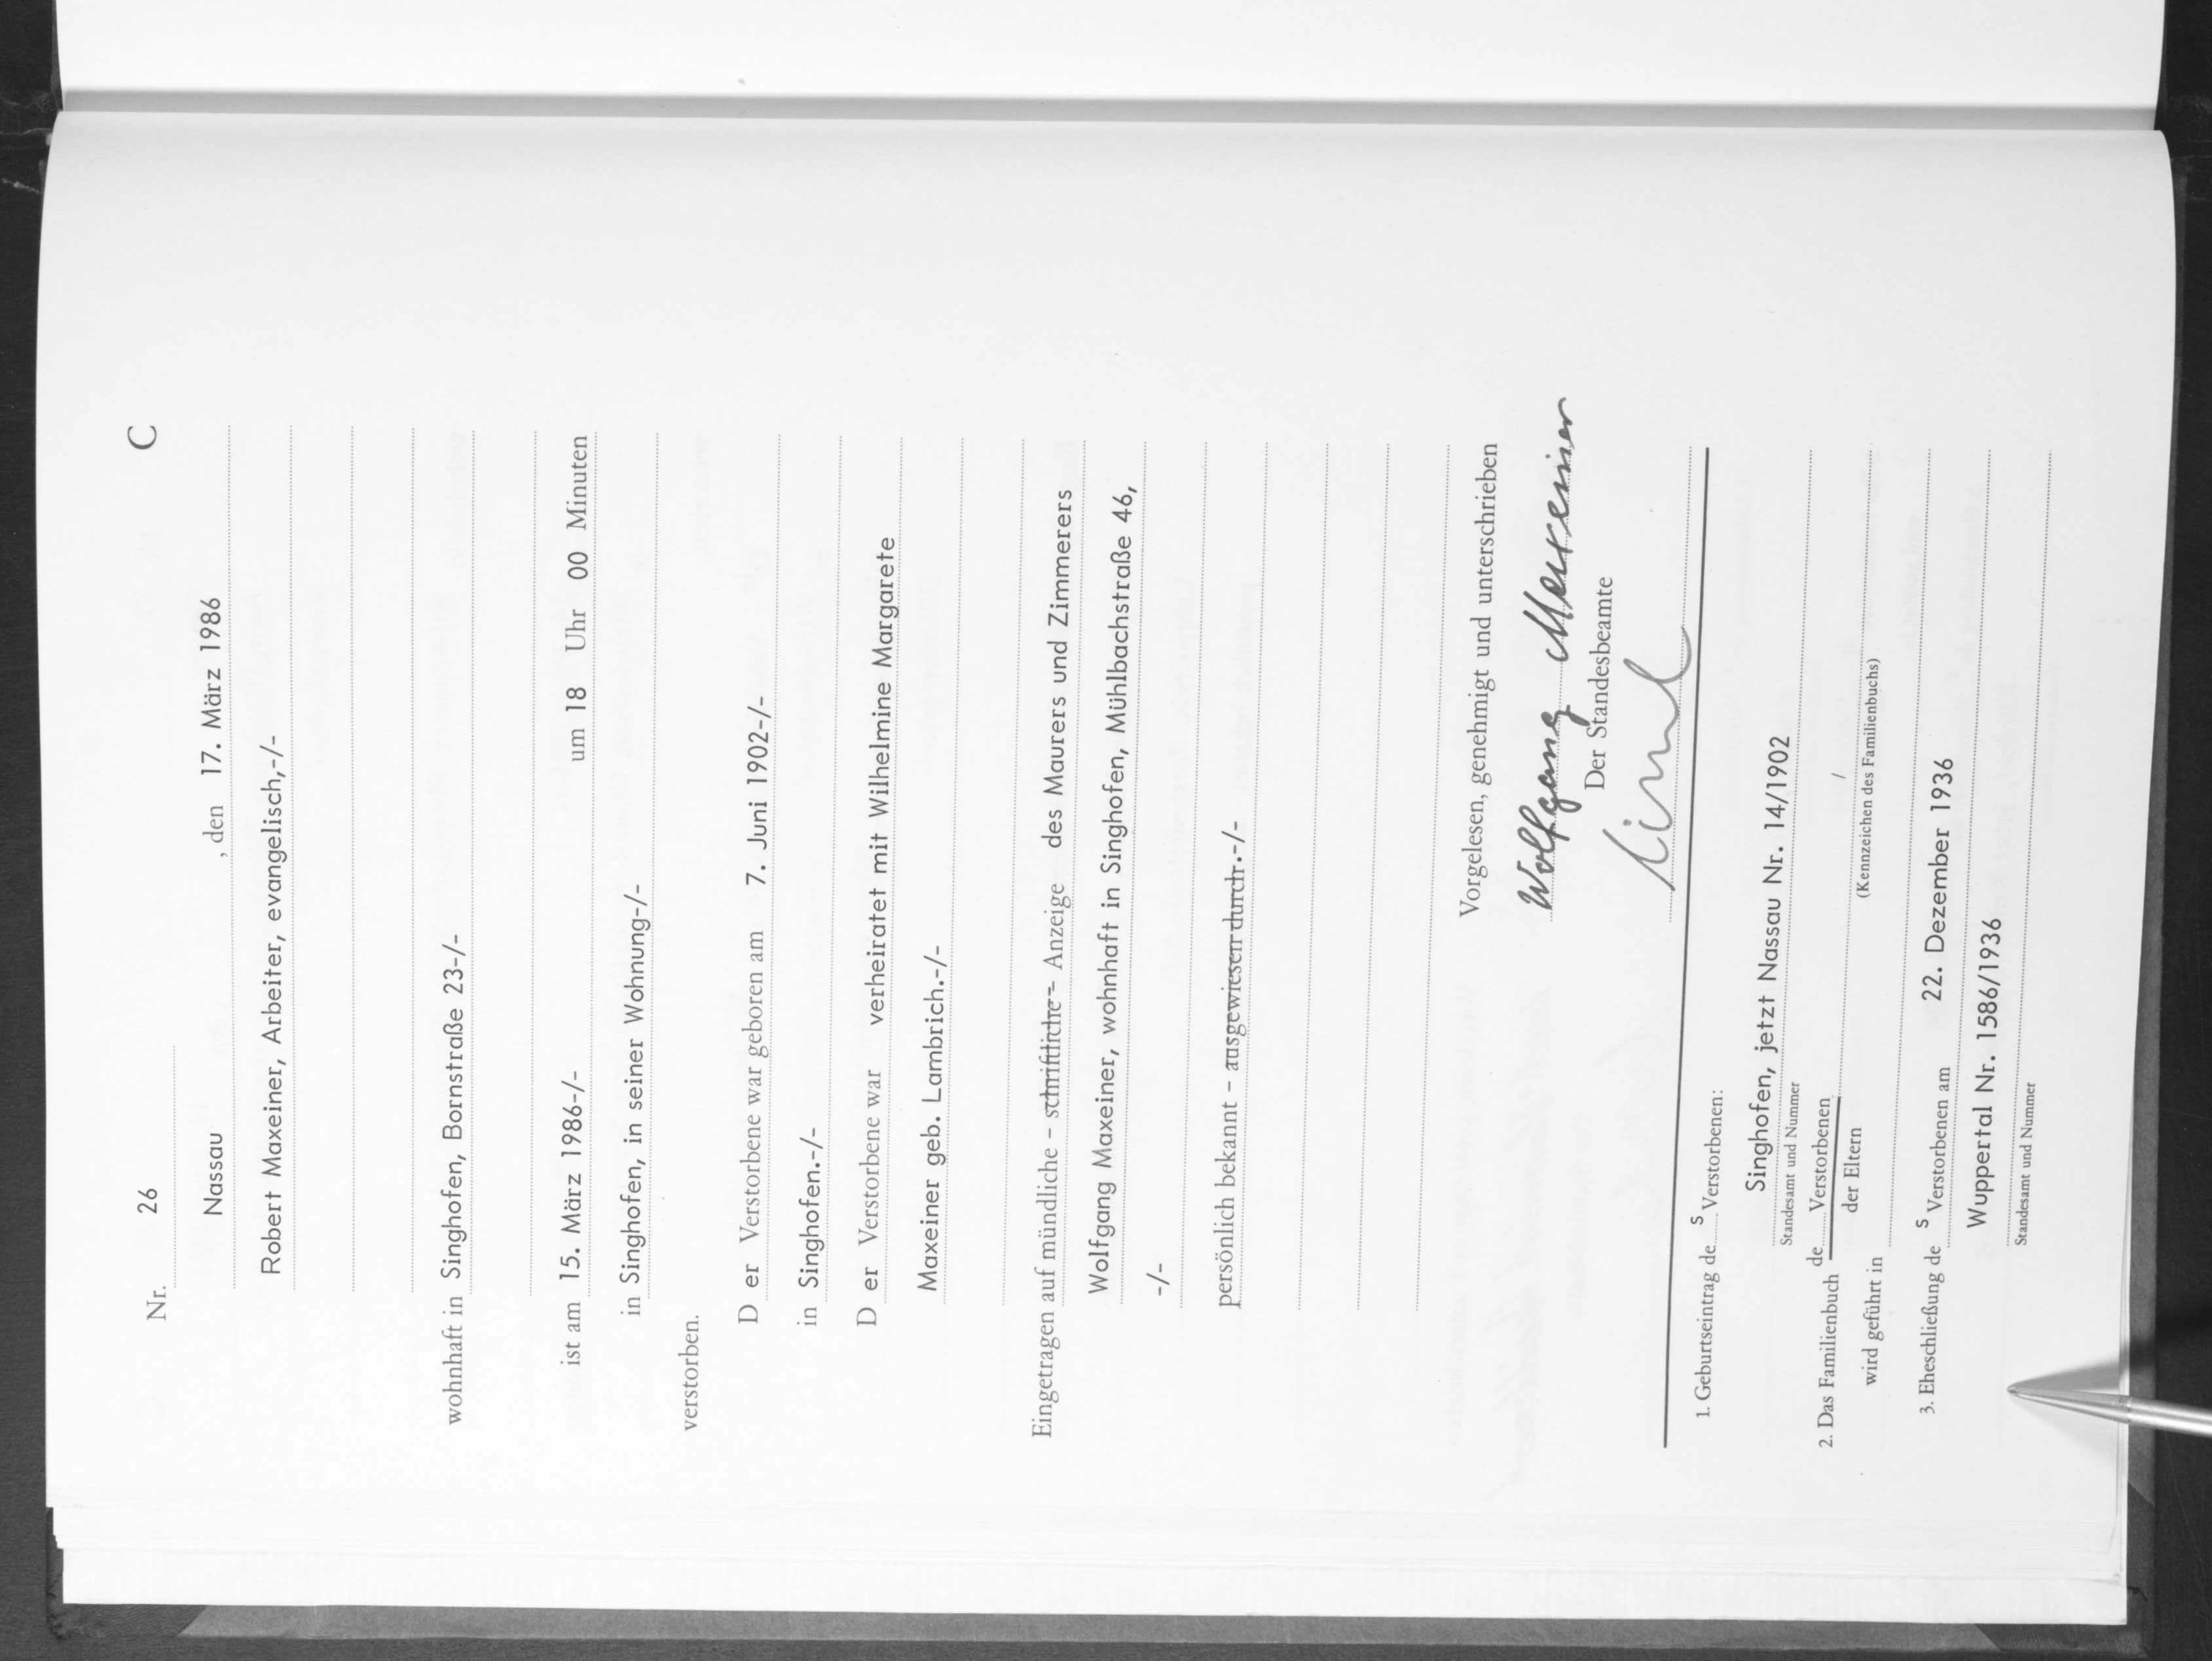 C
Nr. 26
Nassau , den 17. März 1986
Robert Maxeiner, Arbeiter, evangelisch,-/-
wohnhaft in Singhofen, Bornstraße 23-/-
ist am 15. März 1986-/- um 18 Uhr 00 Minuten
in Singhofen, in seiner Wohnung-/-
verstorben.
D er Verstorbene war geboren am 7. Juni 1902-/-
in Singhofen.-/-
D er Verstorbene war verheiratet mit Wilhelmine Margarete
Maxeiner geb. Lambrich.-/-
Eingetragen auf mündliche - schriftliche - Anzeige des Maurers und Zimmerers
Wolfgang Maxeiner, wohnhaft in Singhofen, Mühlbachstraße 46,
-/-
persönlich bekannt - ausgewiesen durch.-/-
Vorgelesen, genehmigt und unterschrieben
Wolfgang Maxeiner
Der Standesbeamte
1. Geburtseintrag de s Verstorbenen:
Singhofen, jetzt Nassau Nr. 14/1902
Standesamt und Nummer
2. Das Familienbuch de Verstorbenen /
der Eltern
wird geführt in (Kennzeichen des Familienbuchs)
3. Eheschließung de s Verstorbenen am 22. Dezember 1936
Wuppertal Nr. 1586/1936
Standesamt und Nummer